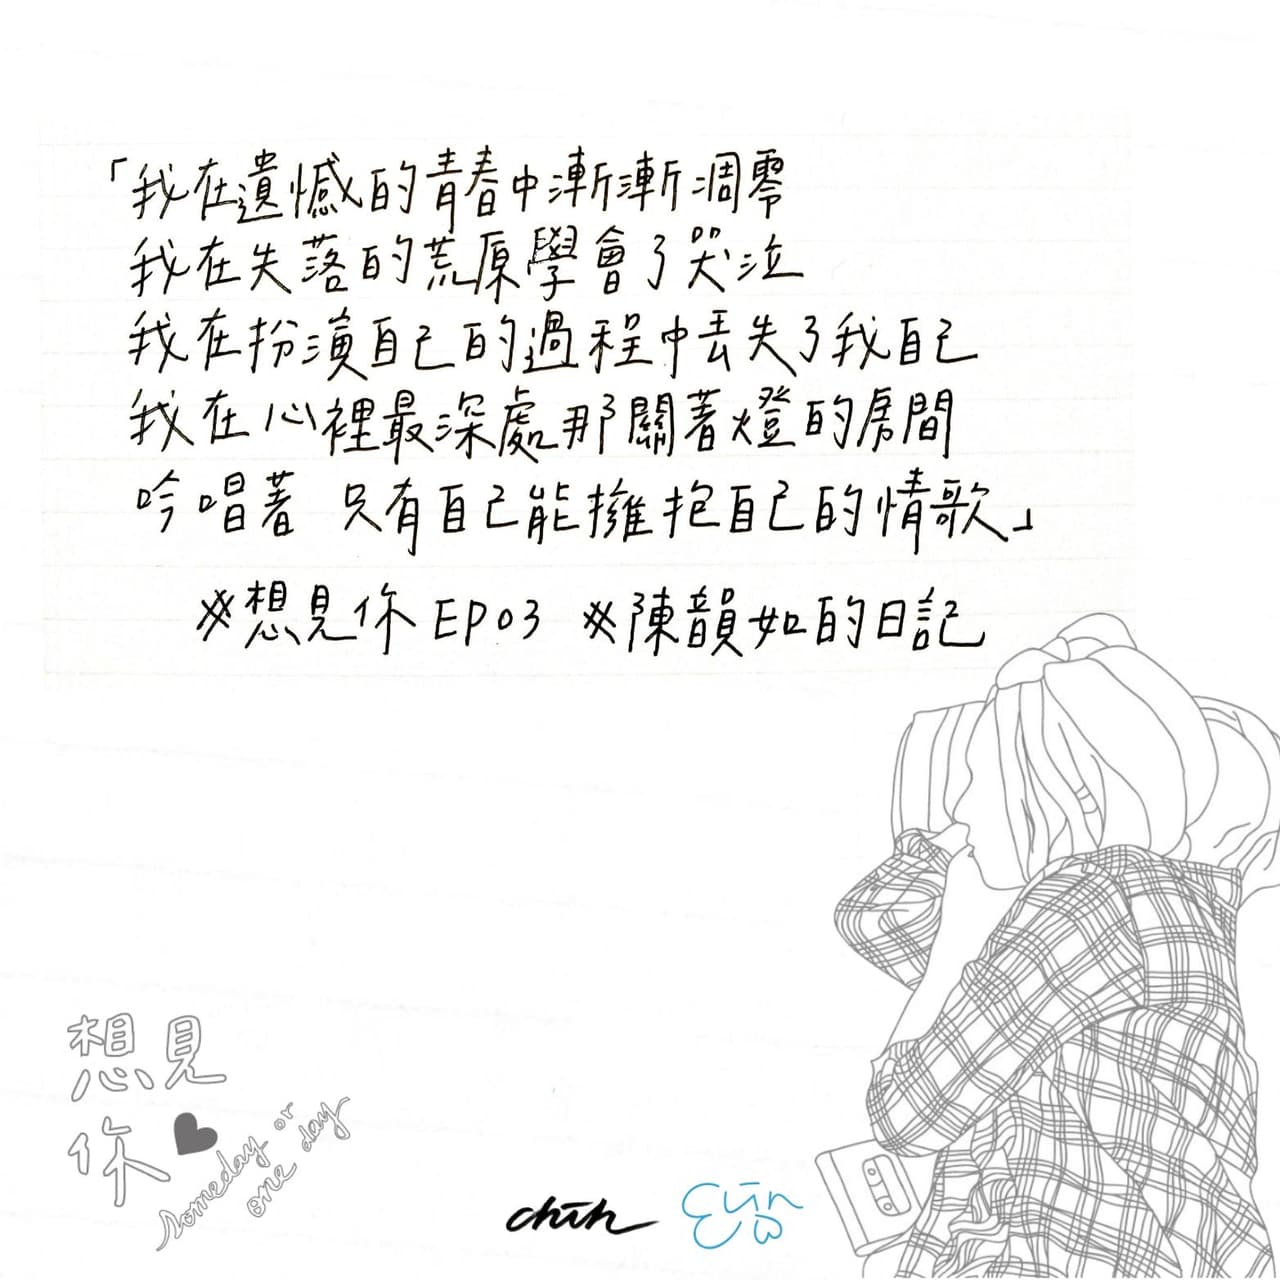 「我在遺憾的青春中漸漸凋零
我在失落的荒原學會了哭泣
我在扮演自己的過程中丟失了我自己
我在心裡最深處那關著燈的房間
吟唱著 只有自己能擁抱自己的情歌」
#想見你EP03 #陳韻如的日記
想見
你
someday or
one day
chih